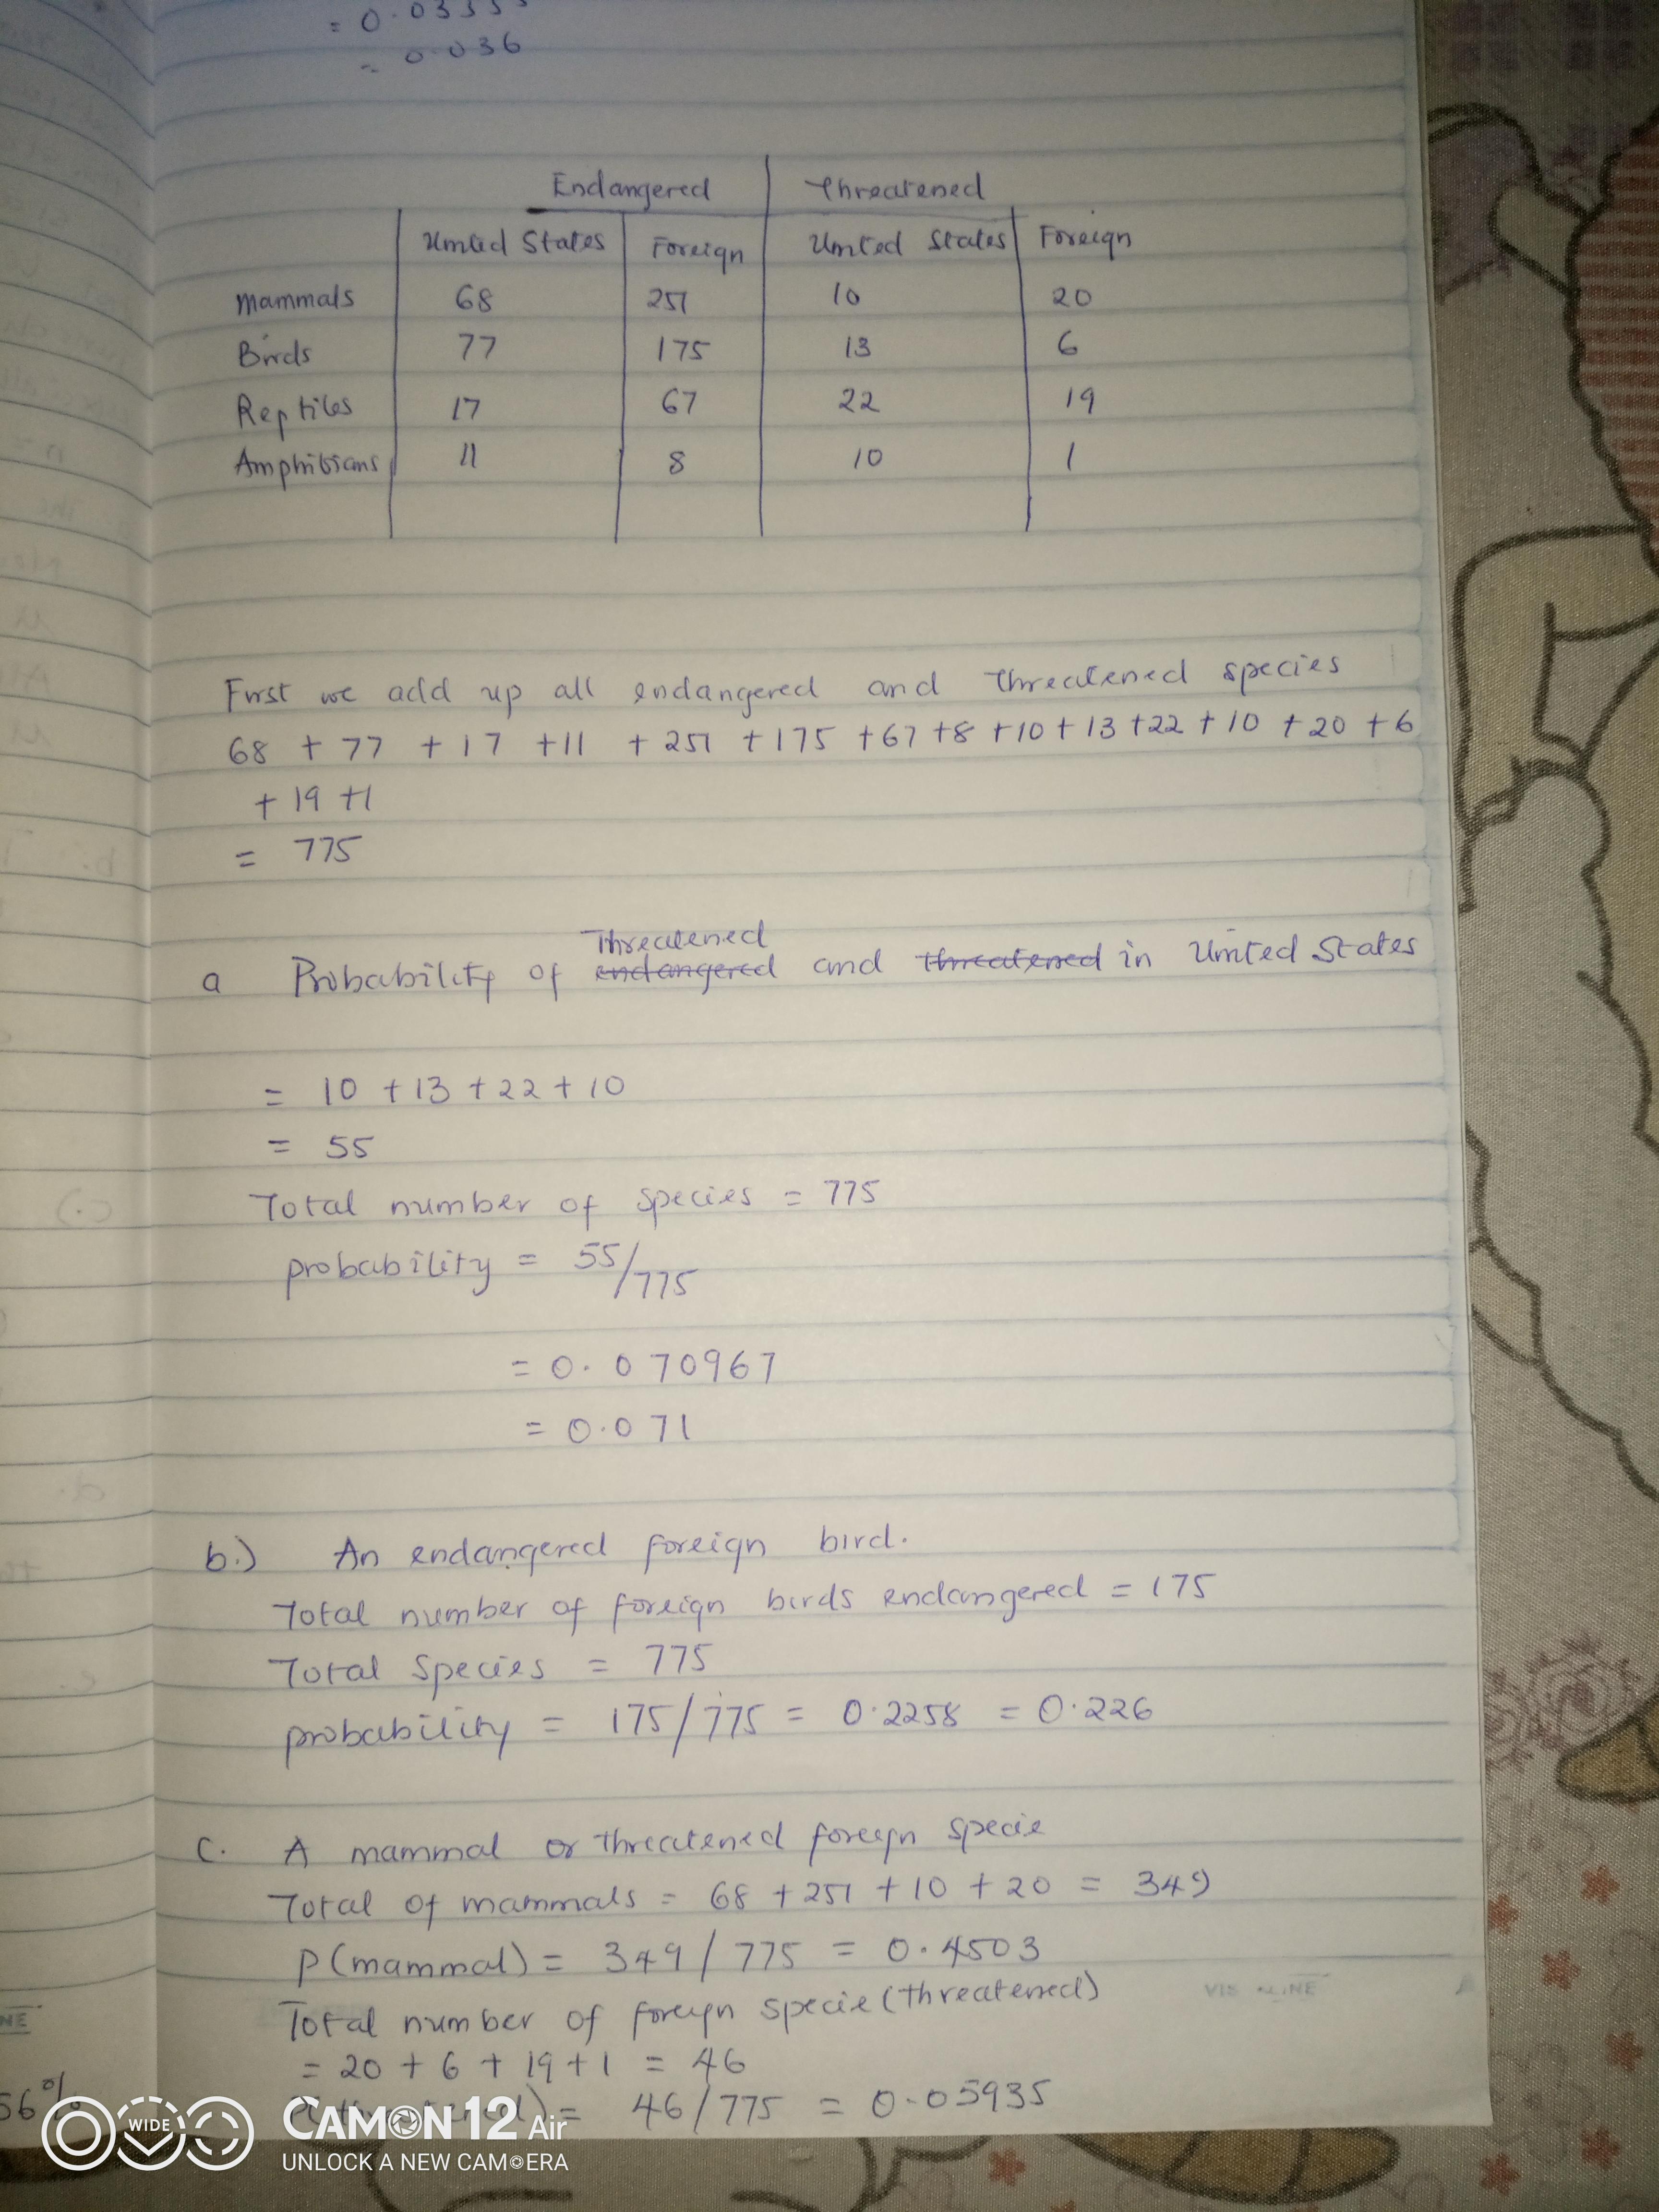 = 0.03555
= 0.036
Endangered Threatened
United States Foreign United States Foreign
Mammals 68 251 10 20
Birds 77 175 13 6
Reptiles 17 67 22 19
Amphibians 11 8 10 1
First we add up all endangered and threatened species
68 + 77 + 17 + 11 + 251 + 175 + 67 + 8 + 10 + 13 + 22 + 10 + 20 + 6
+ 19 + 1
= 775
Threatened
a Probability of endangered and threatened in United States
= 10 + 13 + 22 + 10
= 55
Total number of species = 775
probability = 55/775
= 0.070967
= 0.071
b.) An endangered foreign bird.
Total number of foreign birds endangered = 175
Total Species = 775
probability = 175/775 = 0.2258 = 0.226
C. A mammal or threatened foreign specie
Total of mammals = 68 + 251 + 10 + 20 = 349
P(mammal) = 349 / 775 = 0.4503
Total number of foreign specie (threatened)
= 20 + 6 + 19 + 1 = 46
= 46/775 = 0.05935
56%
WIDE
CAMON 12 Air
UNLOCK A NEW CAMERA